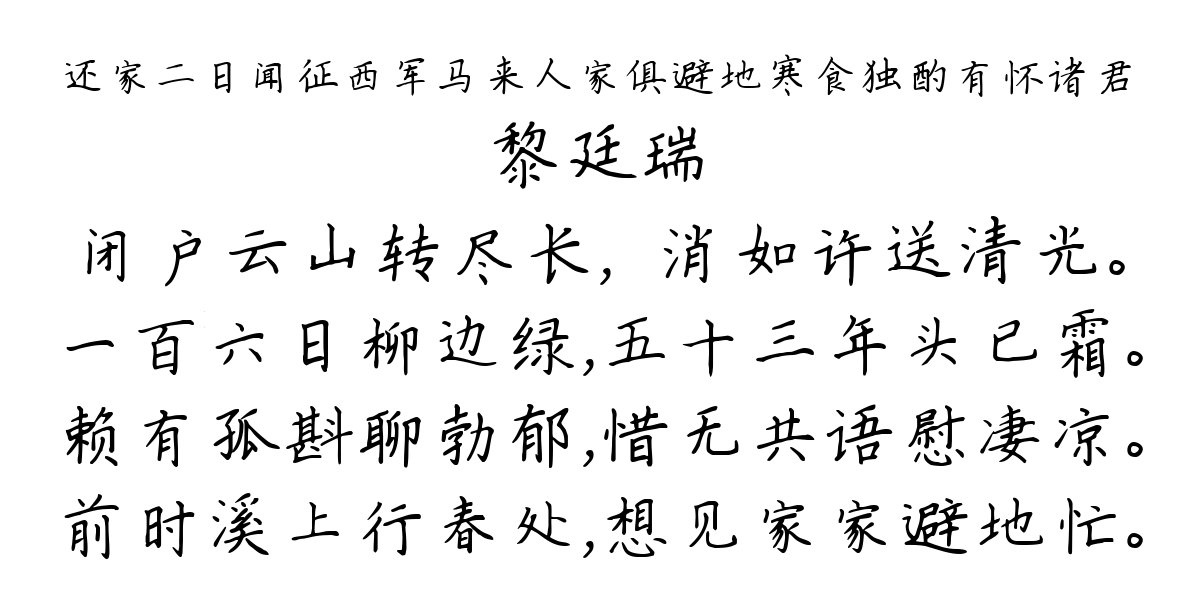 还家二日闻征西军马来人家俱避地寒食独酌有怀诸君
黎廷瑞
闭户云山转尽长，消如许送清光。
一百六日柳边绿,五十三年头已霜。
赖有孤斟聊勃郁,惜无共语慰凄凉。
前时溪上行春处,想见家家避地忙。